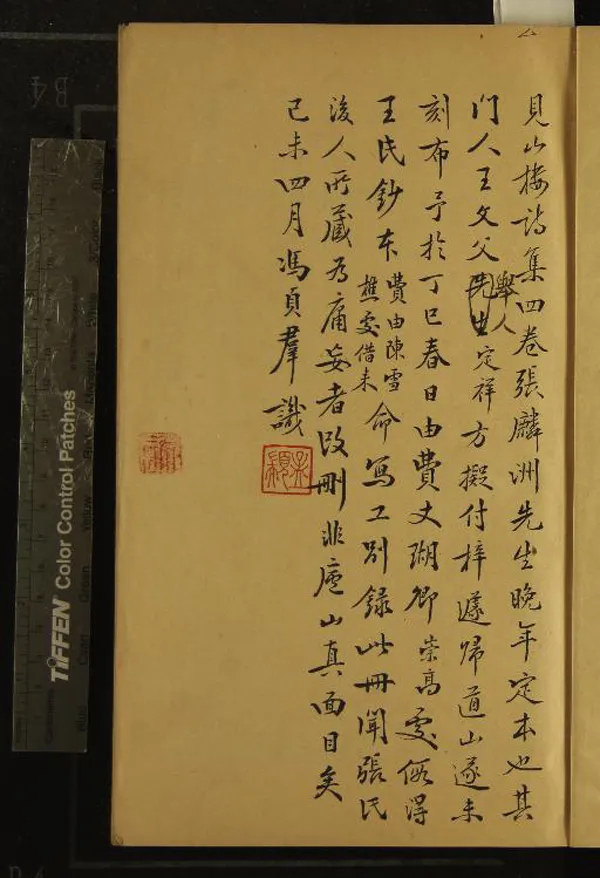 見山樓詩集四卷張麟洲先生晚年定本也其
門人王文父先生舉人定祥方擬付梓遽歸道山遂未
刻布予於丁巳春日由費丈瑚卿崇高處假得
王氏鈔本費由陳雪樵處借來命寫工別錄此冊聞張氏
後人所藏為庸妄者改刪非廬山真面目矣
己未四月馮貞羣識
TIFFEN Color Control Patches
B4